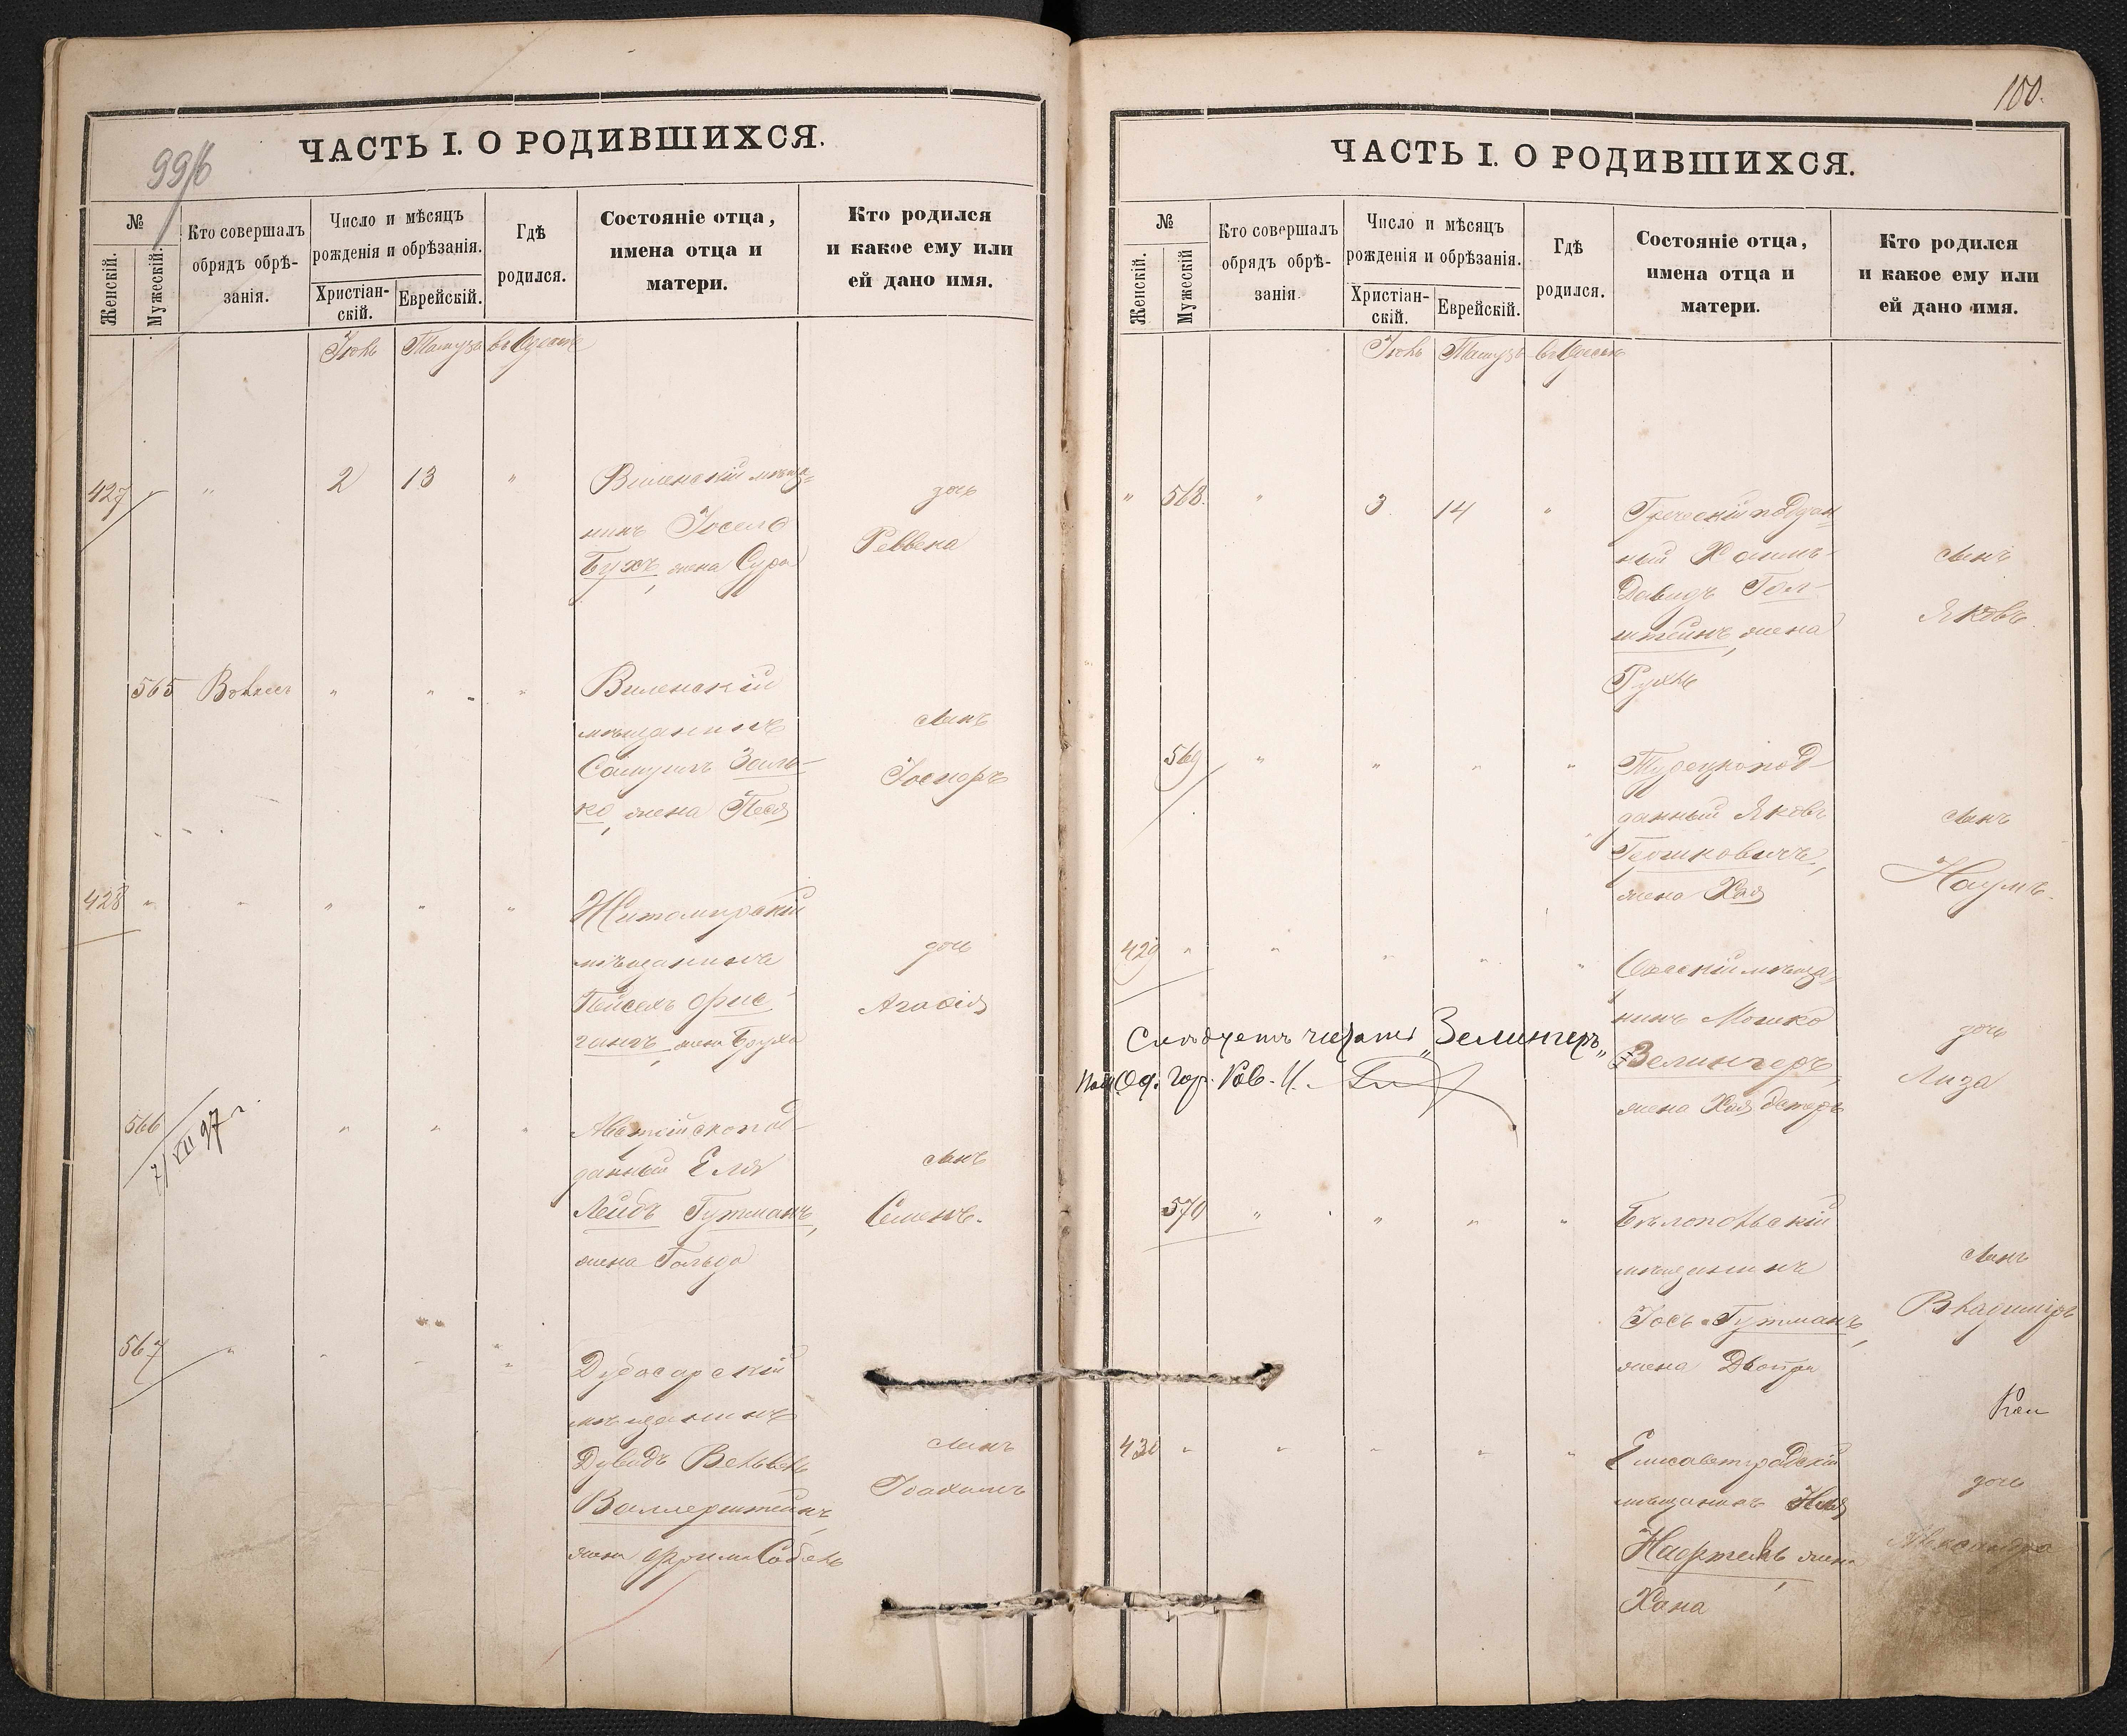 99/б
ЧАСТЬ I. О РОДИВШИХСЯ.
№
Женскій.
Мужескій.
Кто совершалъ
обрядъ обрѣ-
занія.
Число и мѣсяцъ
рожденія и обрѣзанія.
Христіан-
скій.
Еврейскій.
Гдѣ
родился.
Состояніе отца,
имена отца и
матери.
Кто родился
и какое ему или
ей дано имя.
Іюль Тамузъ въ Одессѣ
427 " " 2 13 "
Виленскій мѣща-
нинъ Іосель
Бухъ, жена Сура
дочь
Реввека
565 " " "
Виленскій
мѣщанинъ
Самуилъ Заль-
ко, жена Песя
сынъ
Іосифъ
428 " " " " "
Житомирскій
мѣщанинъ
Пейсахъ Фис-
жена Бруха
дочь
566 " " "
7/VII 97 г.
Австрійскопод-
данный Еля
Лейбъ Гутманъ,
жена Гольда
сынъ
Семенъ.
567 " " " "
Дубосарскій
мѣщанинъ
Дувидъ Вельвель
Валлерштейнъ,
жена Фрима
сынъ
Іоахимъ
100.
ЧАСТЬ I. О РОДИВШИХСЯ.
№
Женскій.
Мужескій
Кто совершалъ
обрядъ обрѣ-
занія.
Число и мѣсяцъ
рожденія и обрѣзанія.
Христіан-
скій.
Еврейскій.
Гдѣ
родился.
Состояніе отца,
имена отца и
матери.
Кто родился
и какое ему или
ей дано имя.
Іюль Тамузъ въ Одессѣ
" 568. " 3 14 "
Греческій поддан-
ный Хаимъ
Давидъ Гол-
штейнъ, жена
Рухль
сынъ
Яковъ.
569 " " " "
Турецкопод-
данный Яковъ
жена Хая
сынъ
Наумъ.
429 " " " " "
Одесскій мѣща-
нинъ Мошко
Зелингеръ,
жена Хая Эстеръ
дочь
Лиза
Слѣдуетъ читать „Зелингеръ„
Од. Гор. Рав.
570 " " " "
Бѣлопольскій
мѣщанинъ
Іось Гутманъ,
жена Двойра
сынъ
Владиміръ
430 " " " " "
Елисаветградскій
мѣщанинъ Илья
жена
Хана
дочь
Александра